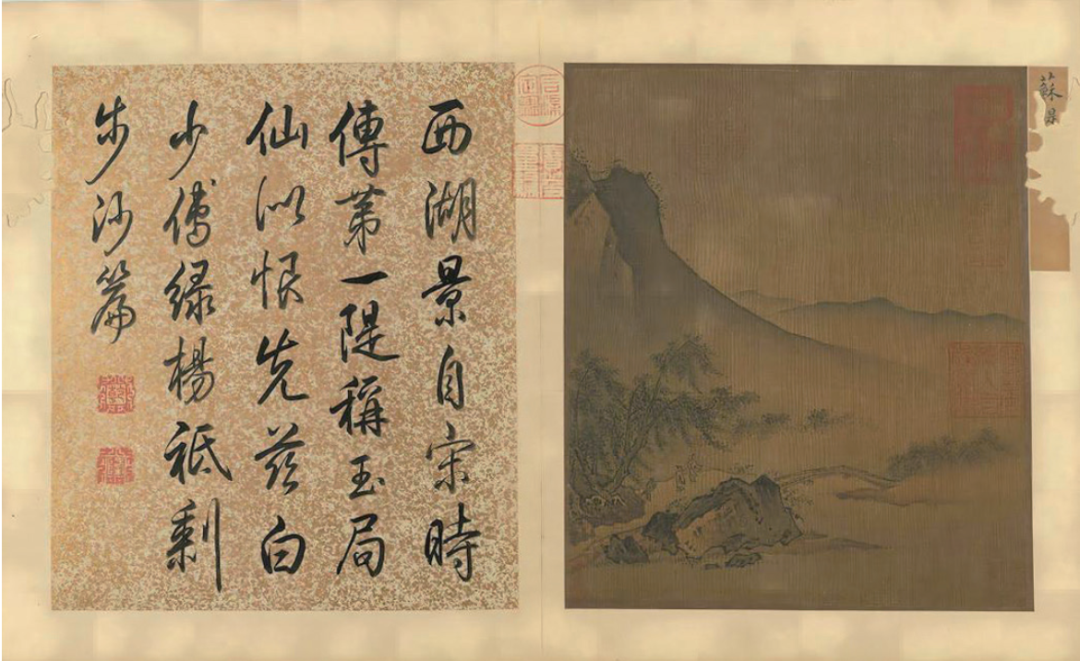 蘇
西湖景自宋時
傳苐一隄稱玉局
仙似恨先茲白
少傅緑楊祗剩
步沙篇